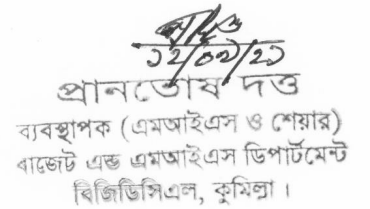 ১২/০৭/২১
প্রানতোষ দত্ত
ব্যবস্থাপক (এমআইএস ও শেয়ার)
বাজেট এন্ড এমআইএস ডিপার্টমেন্ট
বিজিডিসিএল, কুমিল্লা।